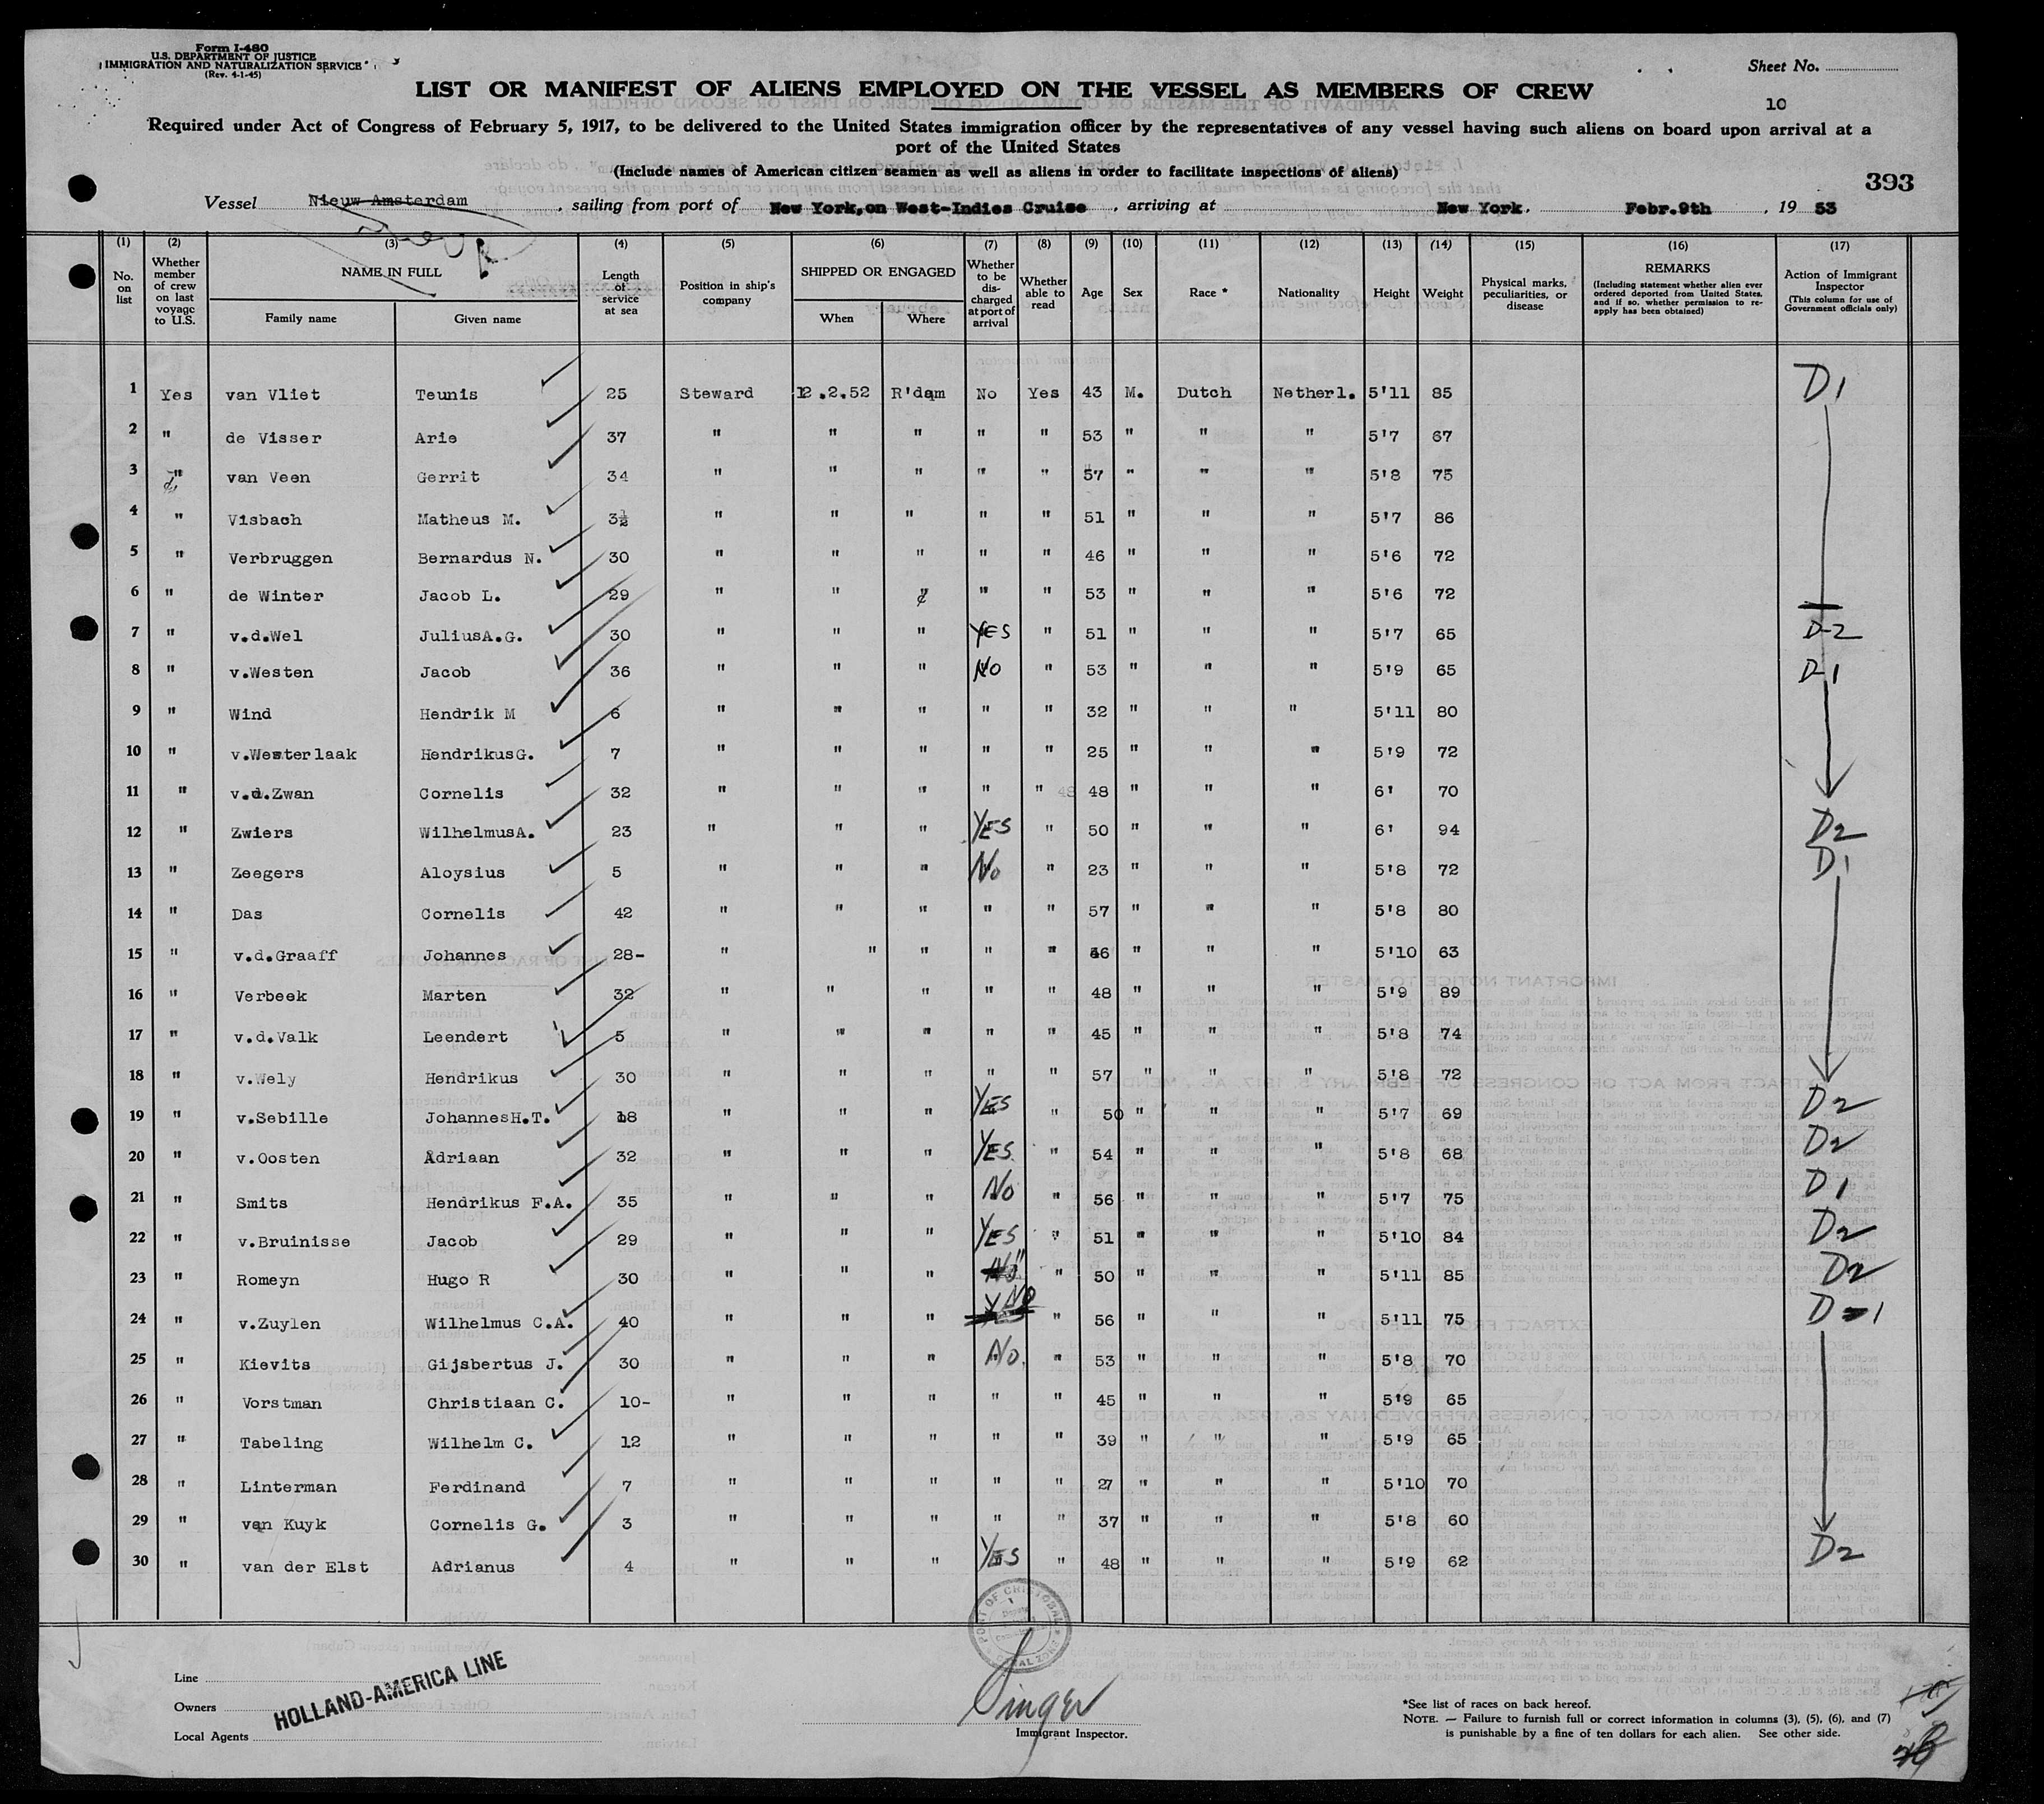 Form I-480
U.S. DEPARTMENT OF JUSTICE
IMMIGRATION AND NATURALIZATION SERVICE
(Rev. 4-1-45)
Sheet No.
10
LIST OR MANIFEST OF ALIENS EMPLOYED ON THE VESSEL AS MEMBERS OF CREW
Required under Act of Congress of February 5, 1917, to be delivered to the United States immigration officer by the representatives of any vessel having such aliens on board upon arrival at a
port of the United States
(Include names of American citizen seamen as well as aliens in order to facilitate inspections of aliens)
393
Vessel Nieuw Amsterdam, sailing from port of New York, on West-Indies Cruise, arriving at New York. Febr.9th, 19 53
(1) (2) (3) (4) (5) (6) (7) (8) (9) (10) (11) (12) (13) (14) (15) (16) (17)
No. on list
Whether member of crew on last voyage to U.S.
NAME IN FULL
Family name
Given name
Length of service at sea
Position in ship's company
SHIPPED OR ENGAGED
When
Where
Whether to be discharged at port of arrival
Whether able to read
Age
Sex
Race *
Nationality
Height
Weight
Physical marks, peculiarities, or disease
REMARKS
(Including statement whether alien ever ordered deported from United States, and if so, whether permission to reapply has been obtained)
Action of Immigrant Inspector
(This column for use of Government officials only)
1 Yes van Vliet Teunis 25 Steward 12.2.52 R'dam No Yes 43 M. Dutch Netherl. 5'11 85 D1
2 " de Visser Arie 37 " " " " " 53 " " " 5'7 67
3 " van Veen Gerrit 34 " " " " " 57 " " " 5'8 75
4 " Visbach Matheus M. 3½ " " " " " 51 " " " 5'7 86
5 " Verbruggen Bernardus N. 30 " " " " " 46 " " " 5'6 72
6 " de Winter Jacob L. 29 " " " " " 53 " " " 5'6 72
7 " v.d.Wel JuliusA.G. 30 " " " YES " 51 " " " 5'7 65 D-2
8 " v.Westen Jacob 36 " " " NO " 53 " " " 5'9 65 D-1
9 " Wind Hendrik M 6 " " " " " 32 " " " 5'11 80
10 " v.Westerlaak HendrikusG. 7 " " " " " 25 " " " 5'9 72
11 " v.d.Zwan Cornelis 32 " " " " " 48 " " " 6' 70
12 " Zwiers WilhelmusA. 23 " " " YES " 50 " " " 6' 94 D2
13 " Zeegers Aloysius 5 " " " No " 23 " " " 5'8 72 D1
14 " Das Cornelis 42 " " " " " 57 " " " 5'8 80
15 " v.d.Graaff Johannes 28- " " " " " 46 " " " 5'10 63
16 " Verbeek Marten 32 " " " " " 48 " " " 5'9 89
17 " v.d.Valk Leendert 5 " " " " " 45 " " " 5'8 74
18 " v.Wely Hendrikus 30 " " " " " 57 " " " 5'8 72
19 " v.Sebille JohannesH.T. 18 " " " YES " 50 " " " 5'7 69 D2
20 " v.Oosten Adriaan 32 " " " YES " 54 " " " 5'8 68 D2
21 " Smits Hendrikus F.A. 35 " " " No " 56 " " " 5'7 75 D1
22 " v.Bruinisse Jacob 29 " " " YES " 51 " " " 5'10 84 D2
23 " Romeyn Hugo R 30 " " " No " " 50 " " " 5'11 85 D2
24 " v.Zuylen Wilhelmus C.A. 40 " " " YES NO " 56 " " " 5'11 75 D-1
25 " Kievits Gijsbertus J. 30 " " " No. " 53 " " " 5'8 70
26 " Vorstman Christiaan C. 10- " " " " " 45 " " " 5'9 65
27 " Tabeling Wilhelm C. 12 " " " " " 39 " " " 5'9 65
28 " Linterman Ferdinand 7 " " " " " 27 " " " 5'10 70
29 " van Kuyk Cornelis G. 3 " " " " " 37 " " " 5'8 60
30 " van der Elst Adrianus 4 " " " YES " 48 " " " 5'9 62 D2
PORT OF CRISTOBAL
CANAL ZONE
Line
Owners
Local Agents
HOLLAND-AMERICA LINE
Singer
Immigrant Inspector.
*See list of races on back hereof.
NOTE. — Failure to furnish full or correct information in columns (3), (5), (6), and (7)
is punishable by a fine of ten dollars for each alien. See other side.